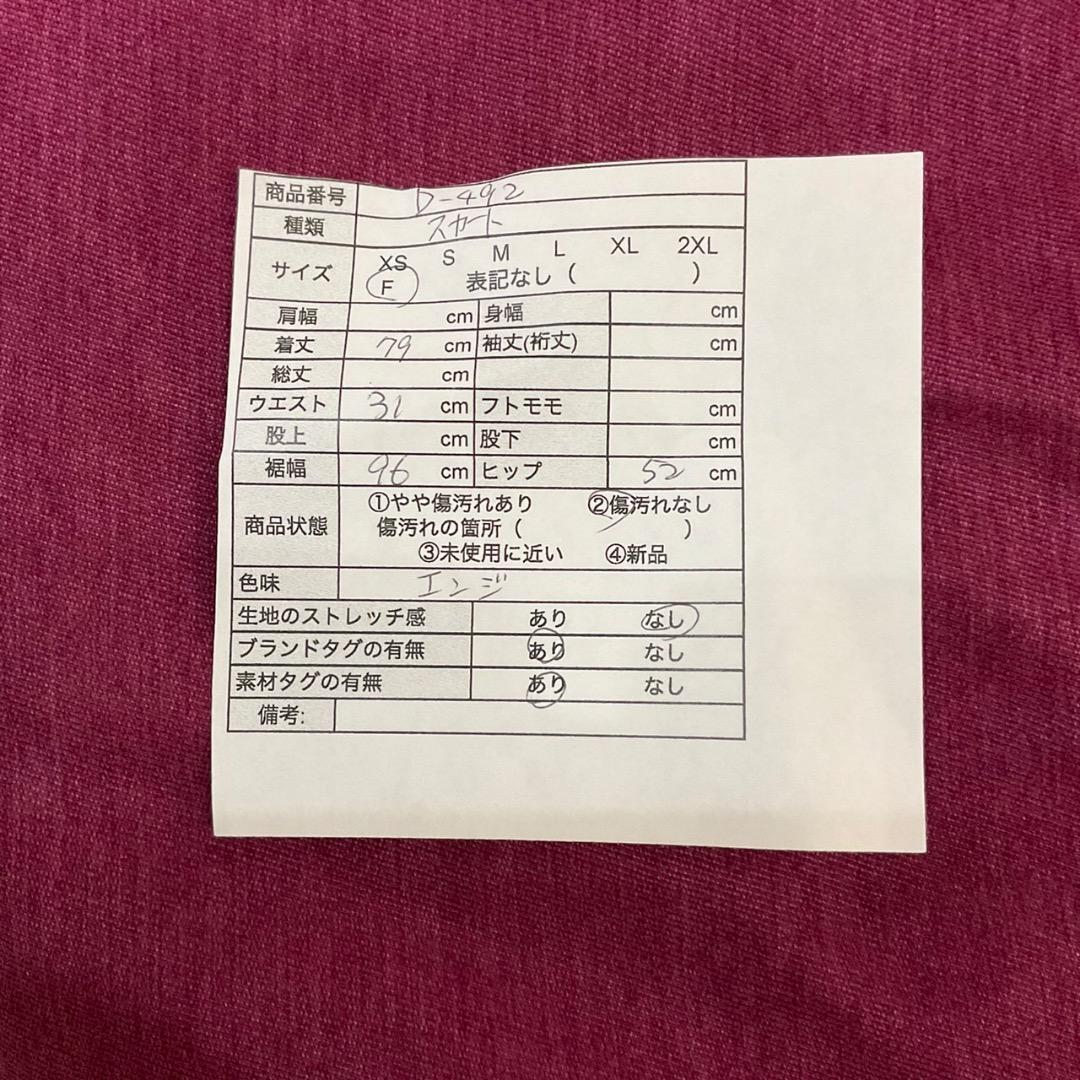 商品番号 D-492
種類 スカート
サイズ XS S M L XL 2XL
F 表記なし ( )
肩幅 cm 身幅 cm
着丈 79 cm 袖丈(裄丈) cm
総丈 cm
ウエスト 31 cm フトモモ cm
股上 cm 股下 cm
裾幅 96 cm ヒップ 52 cm
商品状態 ①やや傷汚れあり ②傷汚れなし
傷汚れの箇所 ( )
③未使用に近い ④新品
色味 エンジ
生地のストレッチ感 あり なし
ブランドタグの有無 あり なし
素材タグの有無 あり なし
備考: